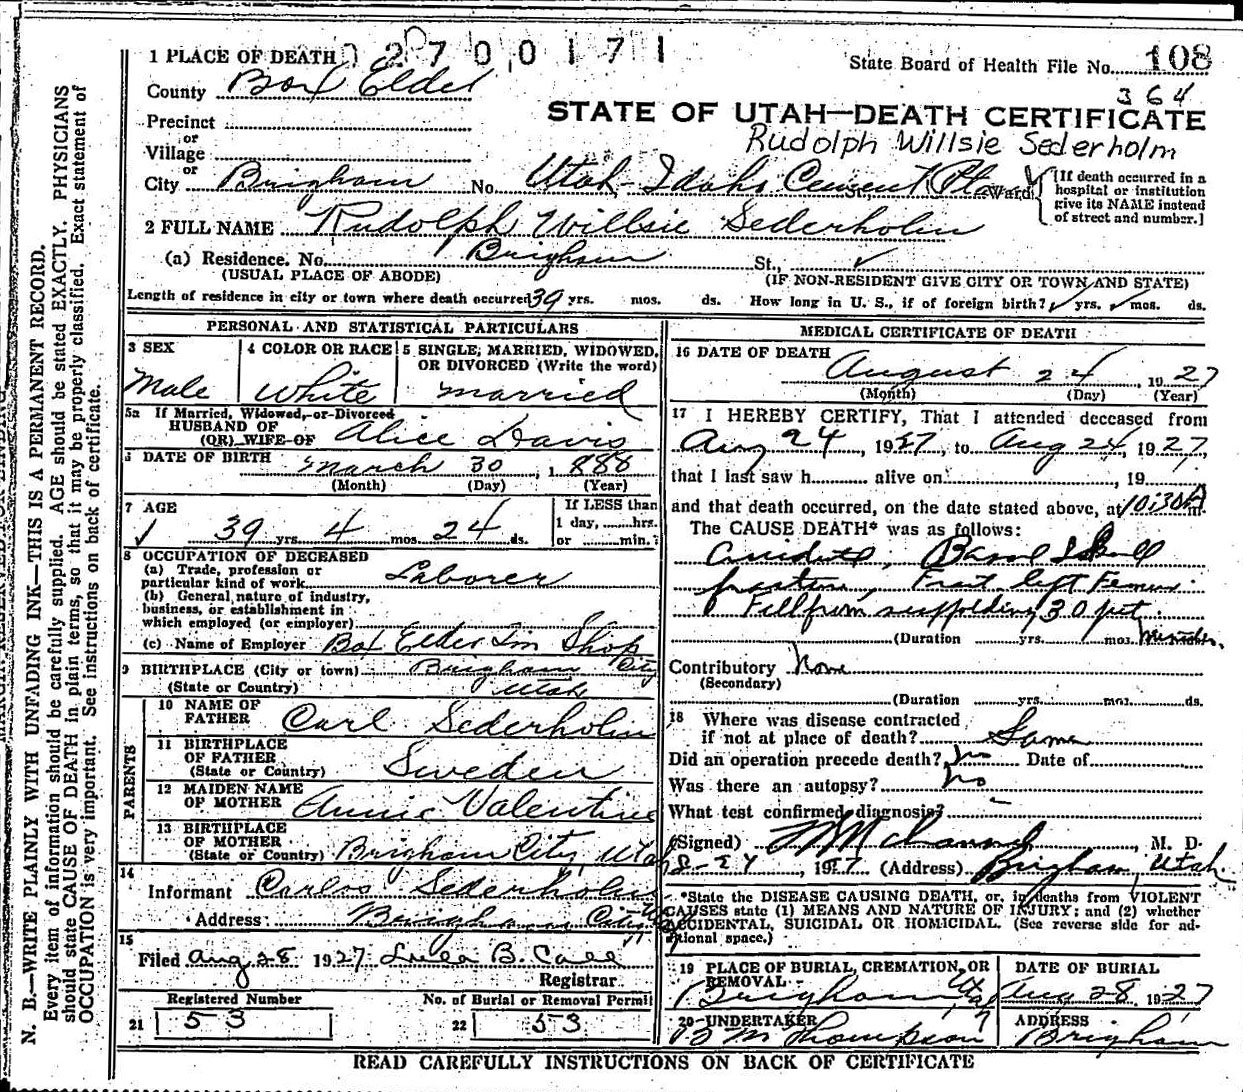 1 PLACE OF DEATH 0 2 7 0 0 1 7 1
State Board of Health File No. 108
364
County Box Elder
STATE OF UTAH—DEATH CERTIFICATE
Rudolph Willsie Sederholm
Precinct
or
Village
or
City Brigham No. Utah-Idaho Cement Plant St., Ward
[If death occurred in a hospital or institution give its NAME instead of street and number.]
2 FULL NAME Rudolph Willsie Sederholm
(a) Residence. No. Brigham St.,
(USUAL PLACE OF ABODE) (IF NON-RESIDENT GIVE CITY OR TOWN AND STATE)
Length of residence in city or town where death occurred 39 yrs. mos. ds. How long in U. S., if of foreign birth? yrs. mos. ds.
PERSONAL AND STATISTICAL PARTICULARS
3 SEX
Male
4 COLOR OR RACE
White
5 SINGLE, MARRIED, WIDOWED, OR DIVORCED (Write the word)
married
5a If Married, Widowed, or Divorced
HUSBAND OF
(OR) WIFE OF Alice Davis
6 DATE OF BIRTH March 30, 1888
(Month) (Day) (Year)
7 AGE
39 yrs. 4 mos. 24 ds.
If LESS than
1 day, ........hrs.
or ........min.?
8 OCCUPATION OF DECEASED
(a) Trade, profession or
particular kind of work Laborer
(b) General nature of industry,
business, or establishment in
which employed (or employer)
(c) Name of Employer Box Elder Tin Shop
9 BIRTHPLACE (City or town) Brigham City
(State or Country) Utah
PARENTS
10 NAME OF
FATHER Carl Sederholm
11 BIRTHPLACE
OF FATHER
(State or Country) Sweden
12 MAIDEN NAME
OF MOTHER Annie Valentine
13 BIRTHPLACE
OF MOTHER
(State or Country) Brigham City, Utah
14
Informant Carlos Sederholm
Address Brigham City
15
Filed Aug 28 1927 Lulu B. Call
Registrar
Registered Number
21 53
No. of Burial or Removal Permit
22 53
MEDICAL CERTIFICATE OF DEATH
16 DATE OF DEATH
August 24, 1927
(Month) (Day) (Year)
17 I HEREBY CERTIFY, That I attended deceased from
Aug 24, 1927, to Aug 24, 1927,
that I last saw h........ alive on........, 19....
and that death occurred, on the date stated above, at 10:30 A m.
The CAUSE DEATH* was as follows:
Accident, Basal Skull
fracture, Fract left Femur
Fell from scaffolding 30 feet.
(Duration yrs. mos. Minutes
Contributory None
(Secondary)
(Duration yrs. mos. ds.
18 Where was disease contracted
if not at place of death? Same
Did an operation precede death? No Date of
Was there an autopsy? No
What test confirmed diagnosis?
(Signed) , M. D.
8-24, 1927 (Address) Brigham, Utah
*State the DISEASE CAUSING DEATH, or, in deaths from VIOLENT
CAUSES state (1) MEANS AND NATURE OF INJURY; and (2) whether
ACCIDENTAL, SUICIDAL OR HOMICIDAL. (See reverse side for ad-
ditional space.)
19 PLACE OF BURIAL, CREMATION, OR
REMOVAL
Brigham, Utah
DATE OF BURIAL
Aug 28, 1927
20 UNDERTAKER
B M Thompson
ADDRESS
Brigham
READ CAREFULLY INSTRUCTIONS ON BACK OF CERTIFICATE
N. B.—WRITE PLAINLY WITH UNFADING INK—THIS IS A PERMANENT RECORD.
Every item of information should be carefully supplied. AGE should be stated EXACTLY. PHYSICIANS
should state CAUSE OF DEATH in plain terms, so that it may be properly classified. Exact statement of
OCCUPATION is very important. See instructions on back of certificate.